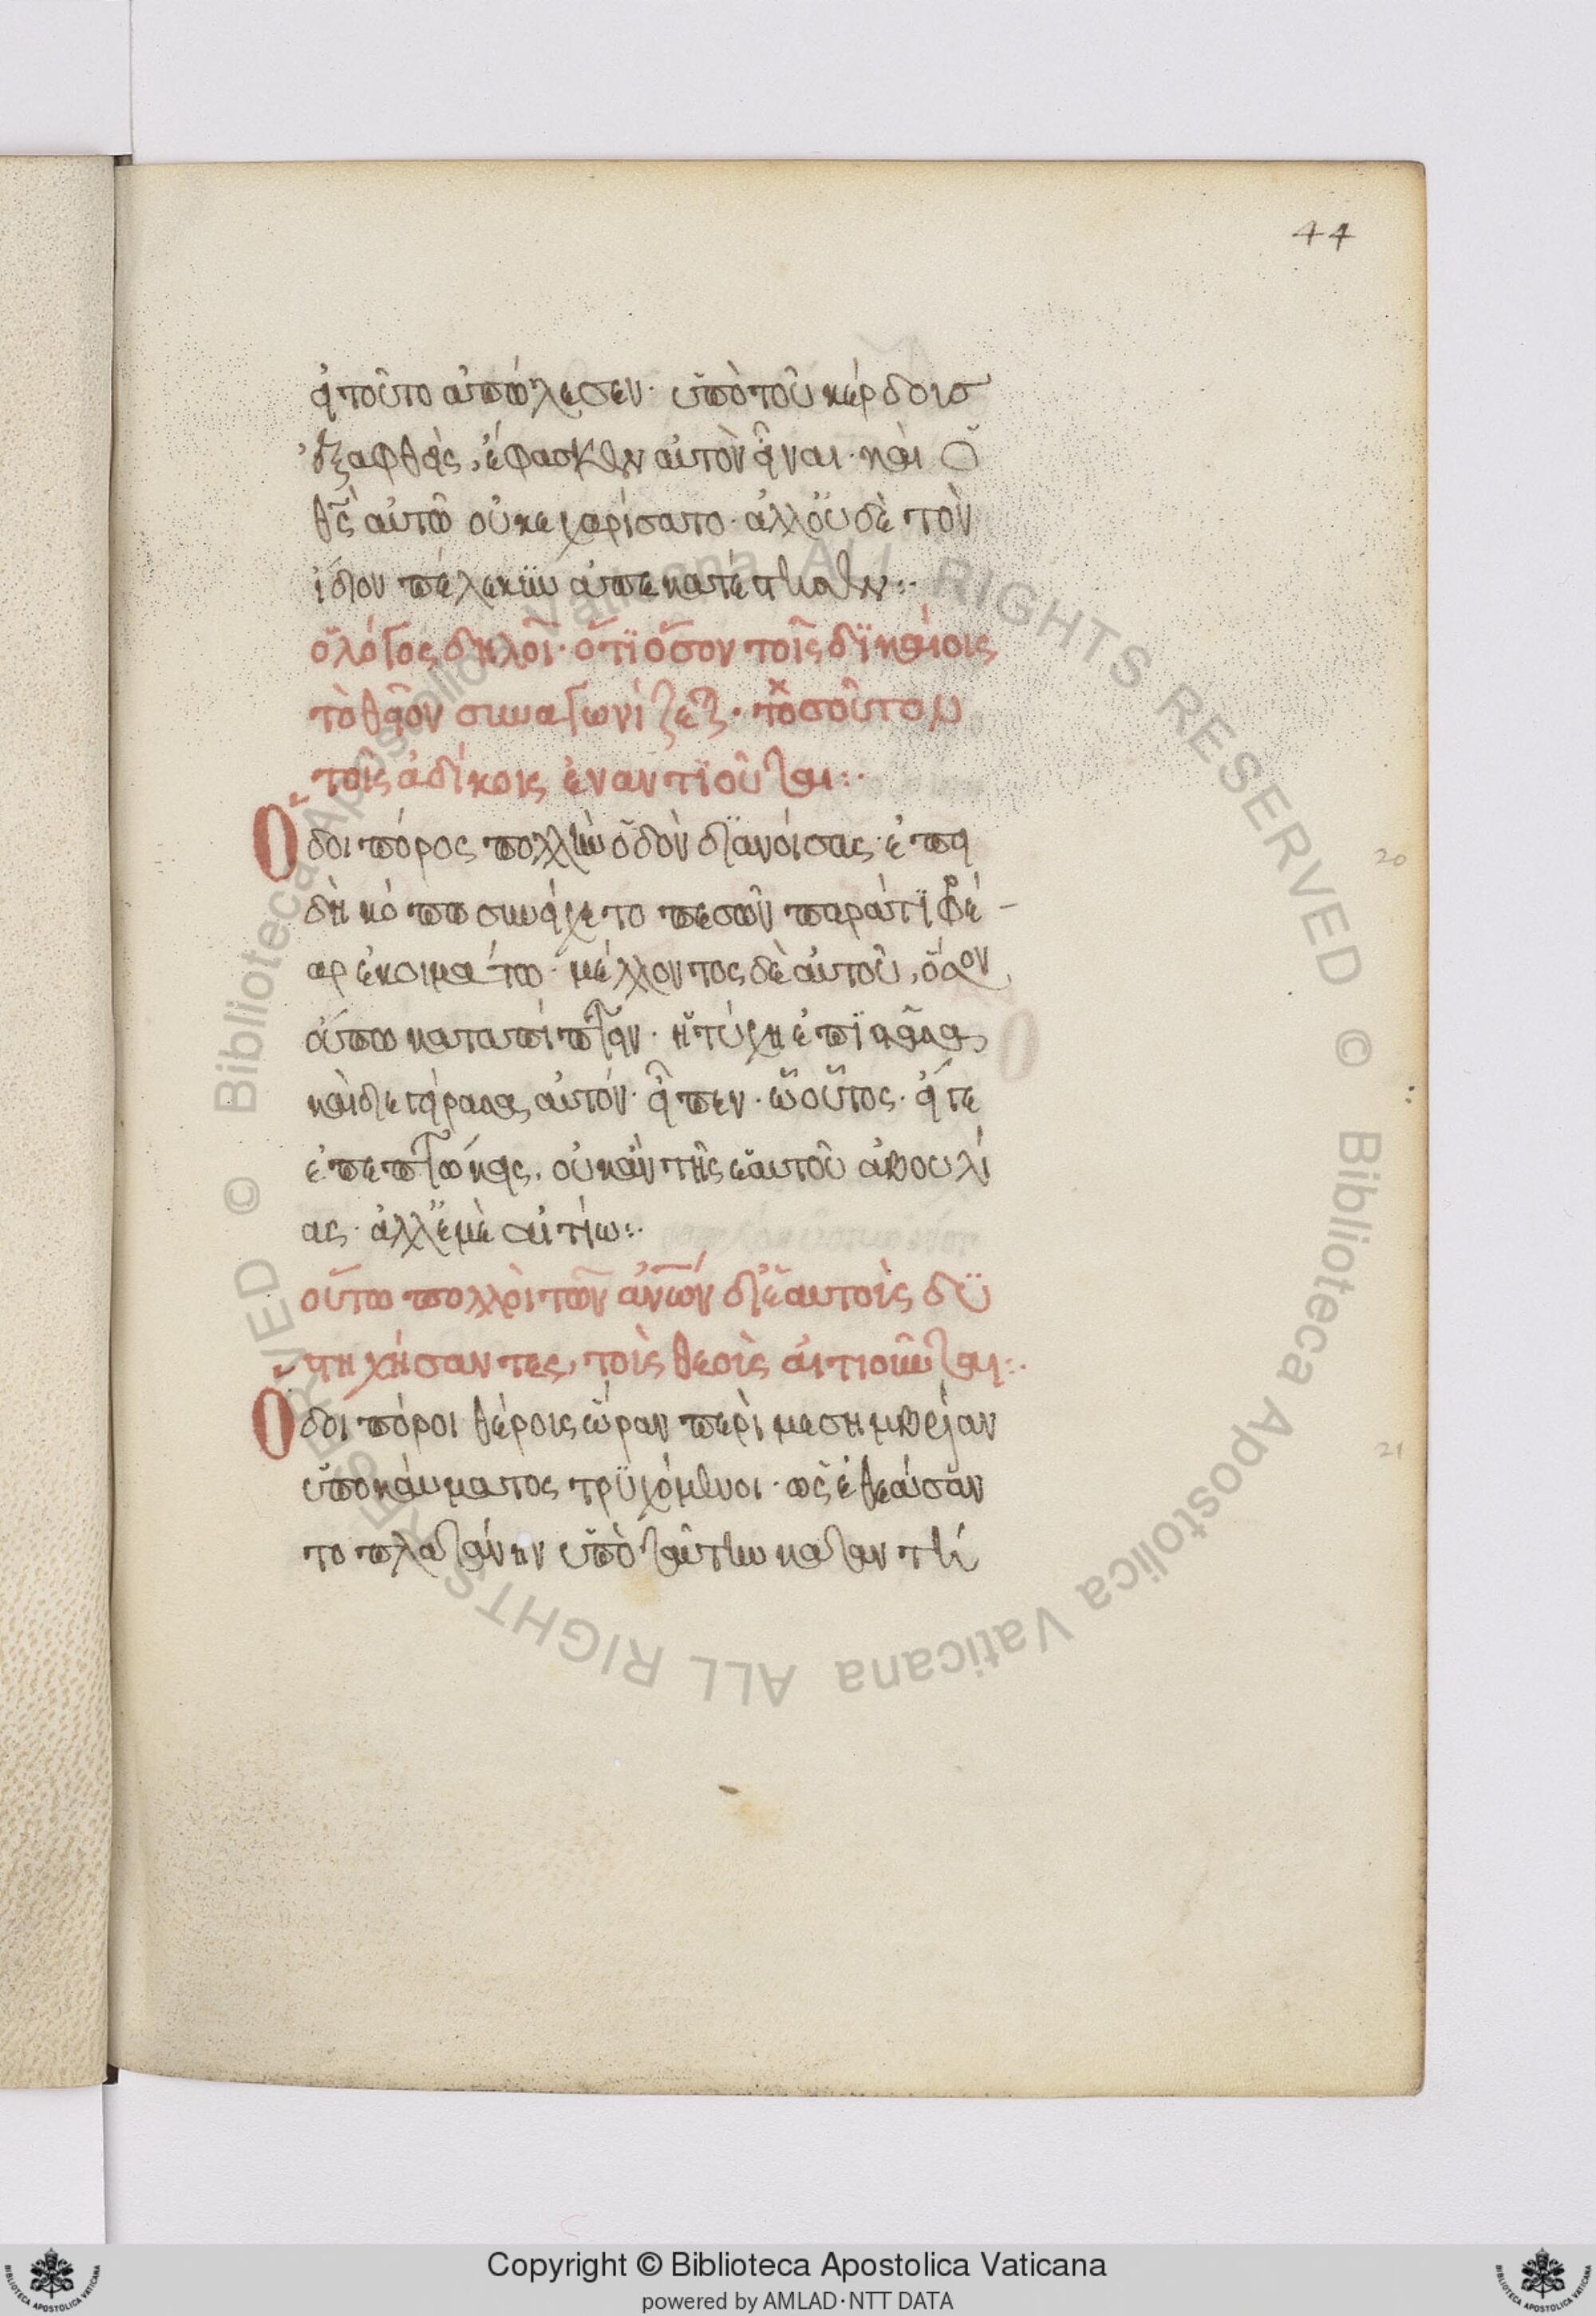 44
εἰ τοῦτο ἀπώλεσεν· ὑπὸ τοῦ κέρδοισ
δ' ἐξαφθεὶς, ἔφασκεν αὐτὸν εἶναι· καὶ ὁ
θς αὐτῶ οὐκ ἐχαρίσατο· ἀλλ' οὐδὲ τὸν
ἴδιον πέλεκϊν ἀπεκατέστησεν:·
ὁ λόγος δηλοῖ· ὅτϊ ὅσον τοῖς δϊκαίοις
τὸ θεῖον συναγωνίζεται· τοσοῦτον
τοῖς ἀδίκοις ἐναντϊοῦται:·
Ὁδοιπόρος πολλὴν ὁδὸν δϊανοίσας· ἐπει
δὴ κόπω συνείχετο πεσὼν παρά τϊ φρέ-
αρ ἐκοιμάτο· μέλλοντος δὲ αὐτοῦ, ὅσον
οὔπω καταπίπτειν· ἡ τύχη ἐπϊστᾶσα
καὶ διεγείρασα αὐτόν· εἶπεν· ὦ οὗτος· εἴγε
ἐπεπτώκεις, οὐκ ἂν τῆς ἑαυτοῦ ἀβουλί
ας· ἀλλ' ἐμὲ αἰτίω:·
οὕτω πολλοὶ τῶν ἀνων δι' ἑαυτοὶς δϋ
στηχήσαντες, τοὶς θεοὶς αἰτιοῦνται:·
Ὁδοιπόροι θέροις ὥραν περὶ μεσημβρίαν
ὑπὸ καύματος τρϋχόμενοι· ὡς ἐθεάσαν
το πλατάνην ὑπὸ ταύτην καταντή
20
21
Copyright © Biblioteca Apostolica Vaticana
powered by AMLAD·NTT DATA
© Biblioteca Apostolica Vaticana ALL RIGHTS RESERVED © Biblioteca Apostolica Vaticana ALL RIGHTS RESERVED